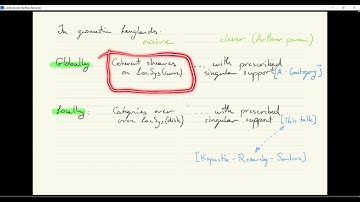 In geometric Langlands:
naive clever (Arthur param.)
Globally Coherent sheaves ... with prescribed
on LocSys(curve) singular support [A.-Gaitsgory]
Locally: Categories over ... with prescribed
over LocSys(disk) singular support [This talk]
[Kapustin-Rozansky-Saulina]